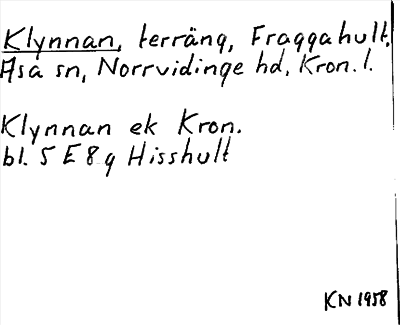 Klynnan, terräng, Fraggahult,
Asa sn, Norrvidinge hd, Kron. l.
Klynnan ek Kron.
bl. 5 E 8 g Hisshult
KN 1958